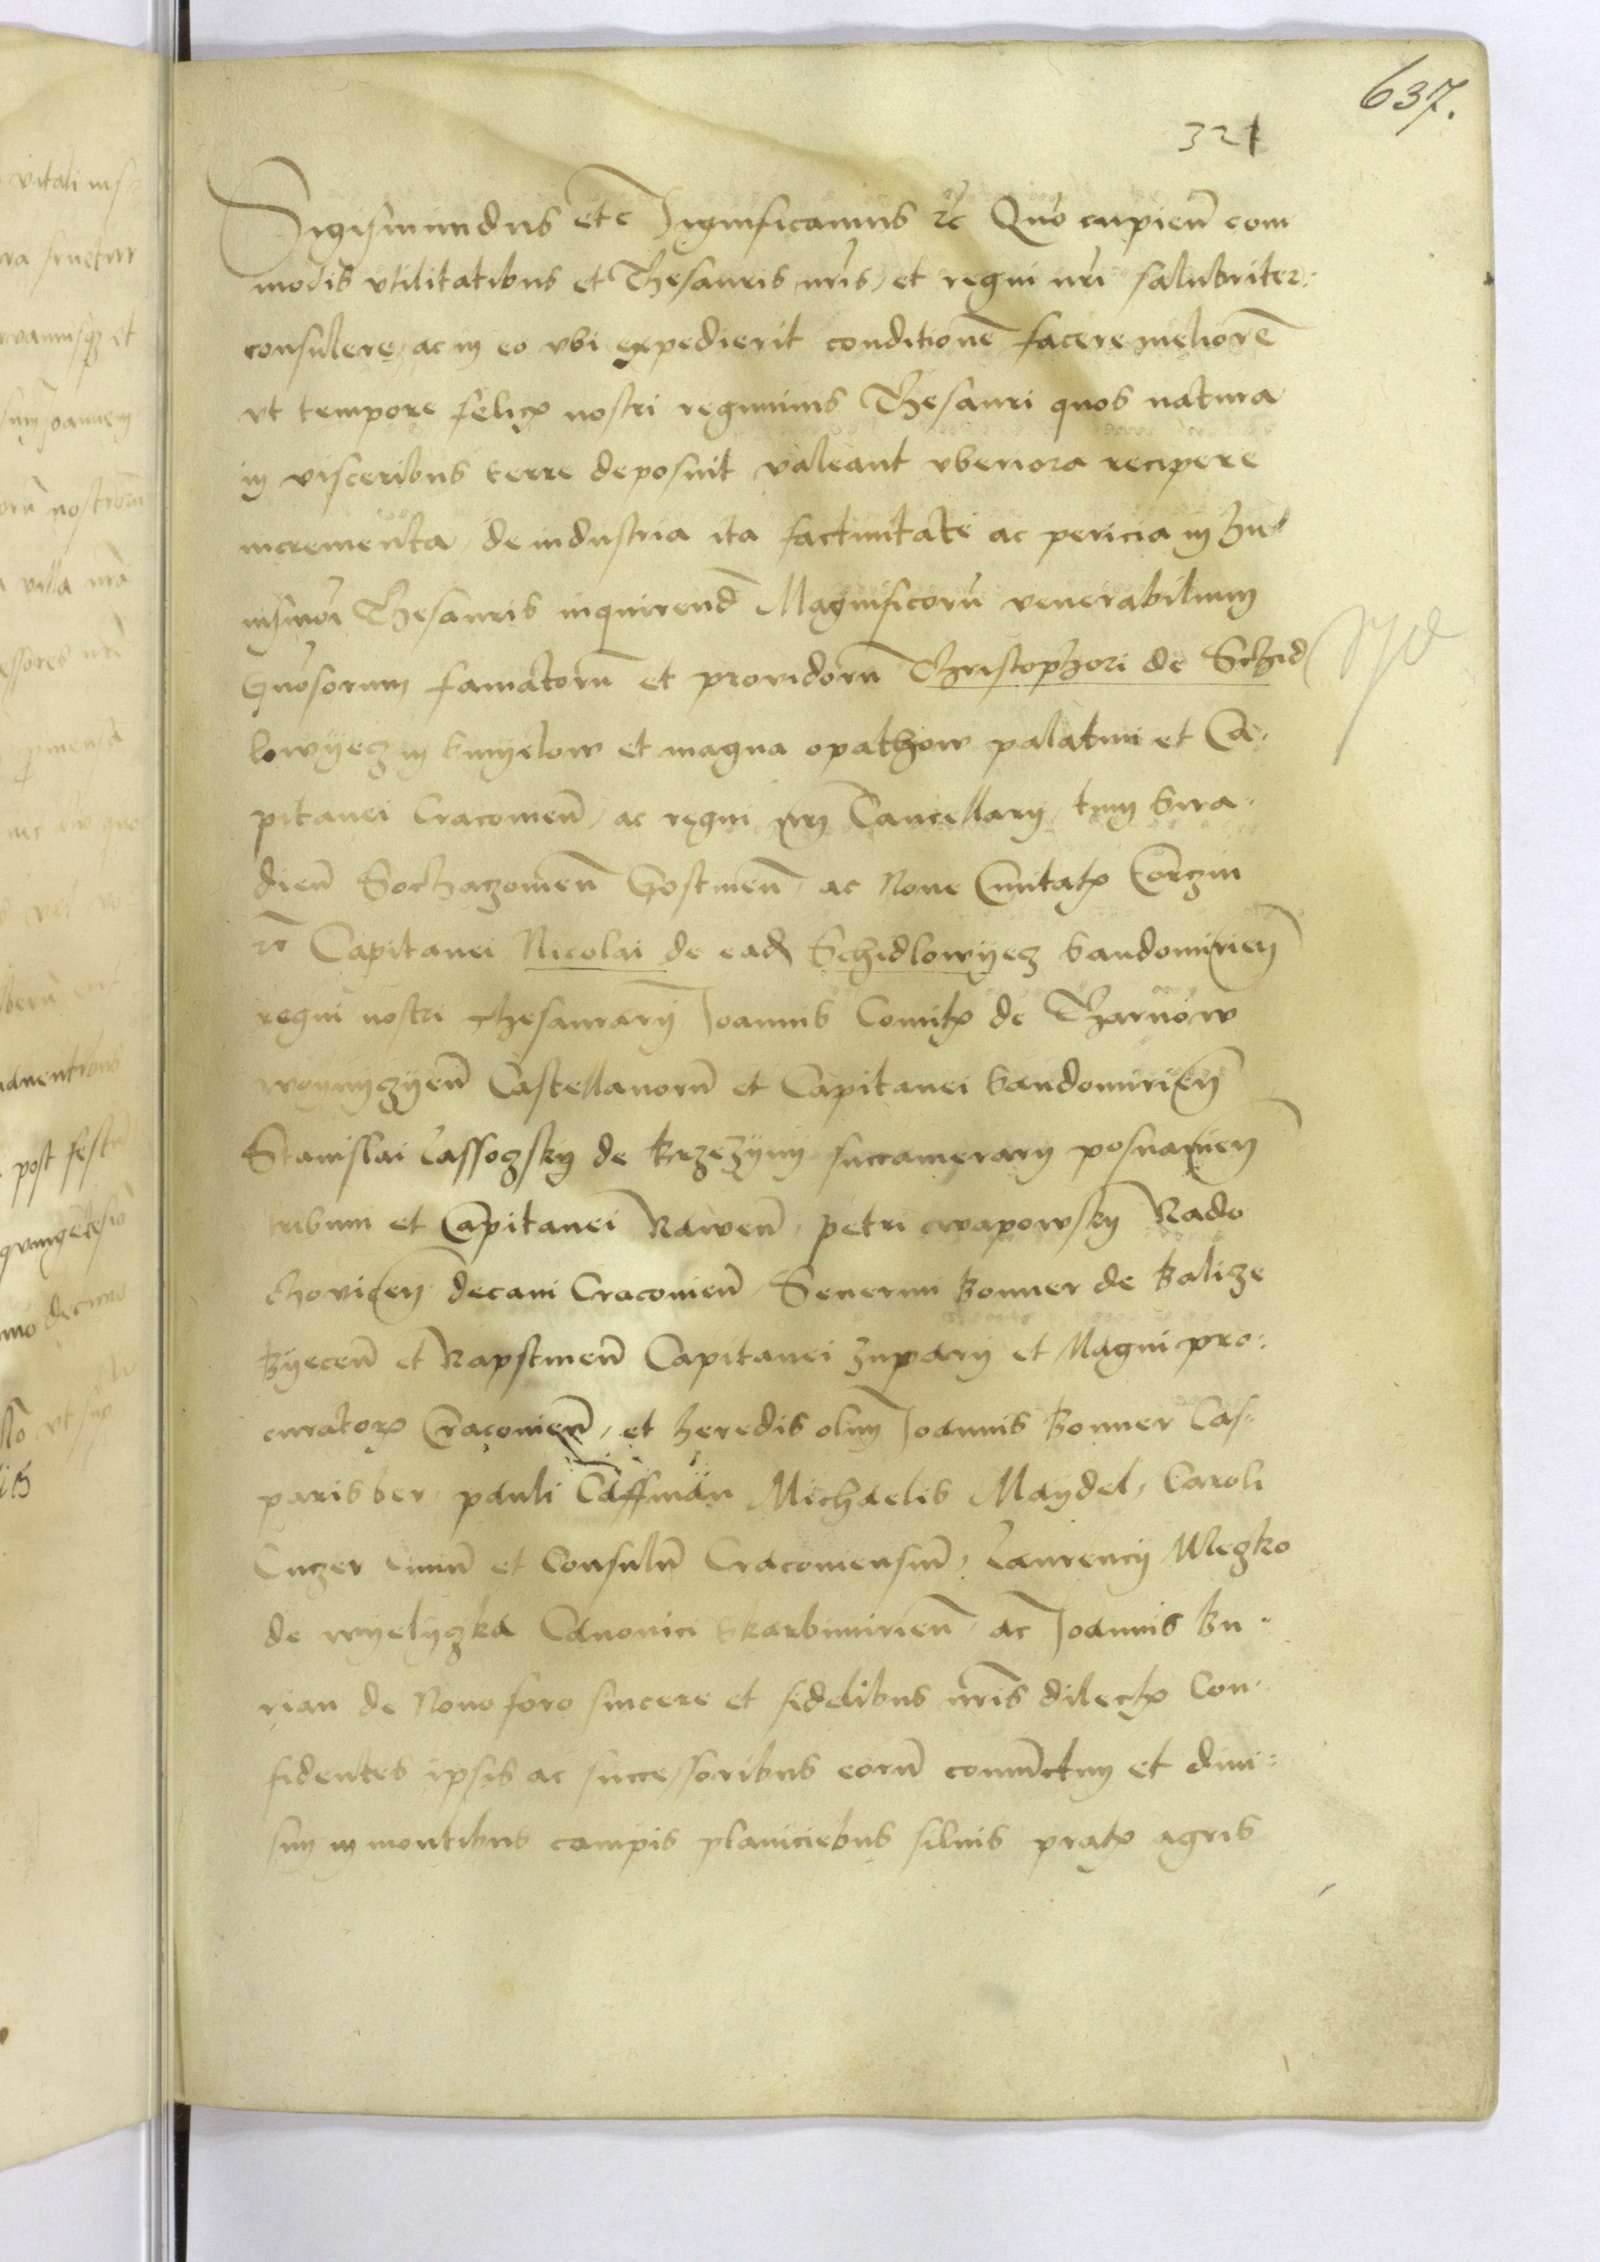 637.
321
Sigismundus etc Significamus etc Quo cupien̄ com
modis utilitatibus et Thesauris nr̄is, et regni nr̄i salubriter
consulere, ac in eo ubi expedierit conditionē facere meliorē
ut tempore felicis nostri regiminis Thesauri quos natura
in visceribus terre deposuit valeant uberiora recipere
incrementa, de industria ita factivitate ac pericia in hu
iusmōi Thesauris inquirend̄ Magnificorū venerabilium
Gn̄osorum famatorū et providorū Christophori de Schid
lowyecz in Cmyelow et magna opathow palatini et Ca-
pitanei Cracovien̄, ac regni nr̄i Cancellarij tum Sira-
dien̄ Sochaczovien̄ Gostinen̄, ac Nove Civitatis Corczin
etc Capitanei Nicolai de ead̄ Schidlowyecz Sandomirien̄
regni nostri thesaurarij Joannis Comitis de Tharnow
woyniczyen̄ Castellanorū et Capitanei Sandomirien̄
Stanislai Lassoczsky de Brzeziny succamerarij posnanien̄
tribum et Capitanei Rawen̄, petri wapowsky Rado
chovien̄ decani Cracovien̄, Severini Bonner de Balicze
Byecen̄ et Rapstinen̄ Capitanei zuparij et Magni pro-
curatoris Cracovien̄, et heredis olim Joannis Bonner Cas-
paris ber, pauli Caffman Michaelis Maydel, Caroli
Cuczer Civiū et Consulū Cracoviensiū, Laurencij Meczko
de wyelyczka Canonici Skarbimirien̄, ac Joannis Bu-
rian de Novo foro sincere et fidelibus nr̄is dilectis Con-
fidentes ipsis ac successoribus eorū coniūctim et divi-
sim in montibus campis planiciebus silvis pratis agris